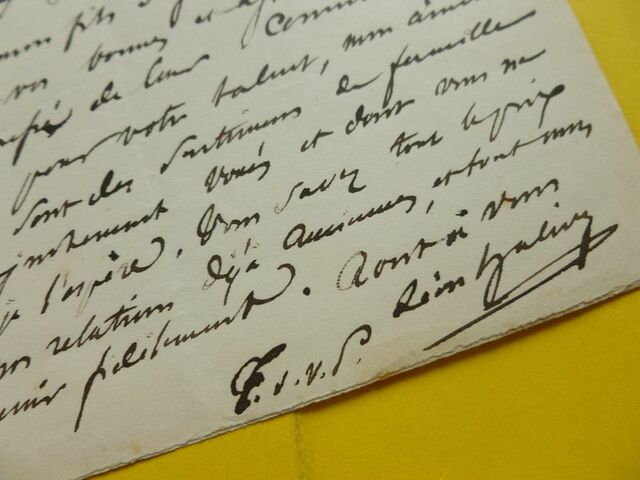 mon fils
vos bonnes et
de leur
pour votre talent, mon
sont des sentimens de famille
voués et dont vous ne
je l'espère. Vous savez tout le prix
nos relations déjà anciennes, et tout mon
fidèlement. Tout à vous
Léon Halévy
T. s. v. p.